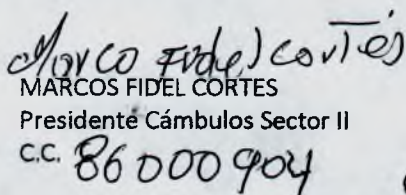 Marco Fidel Cortés
MARCOS FIDEL CORTES
Presidente Cámbulos Sector II
C.C. 86000904